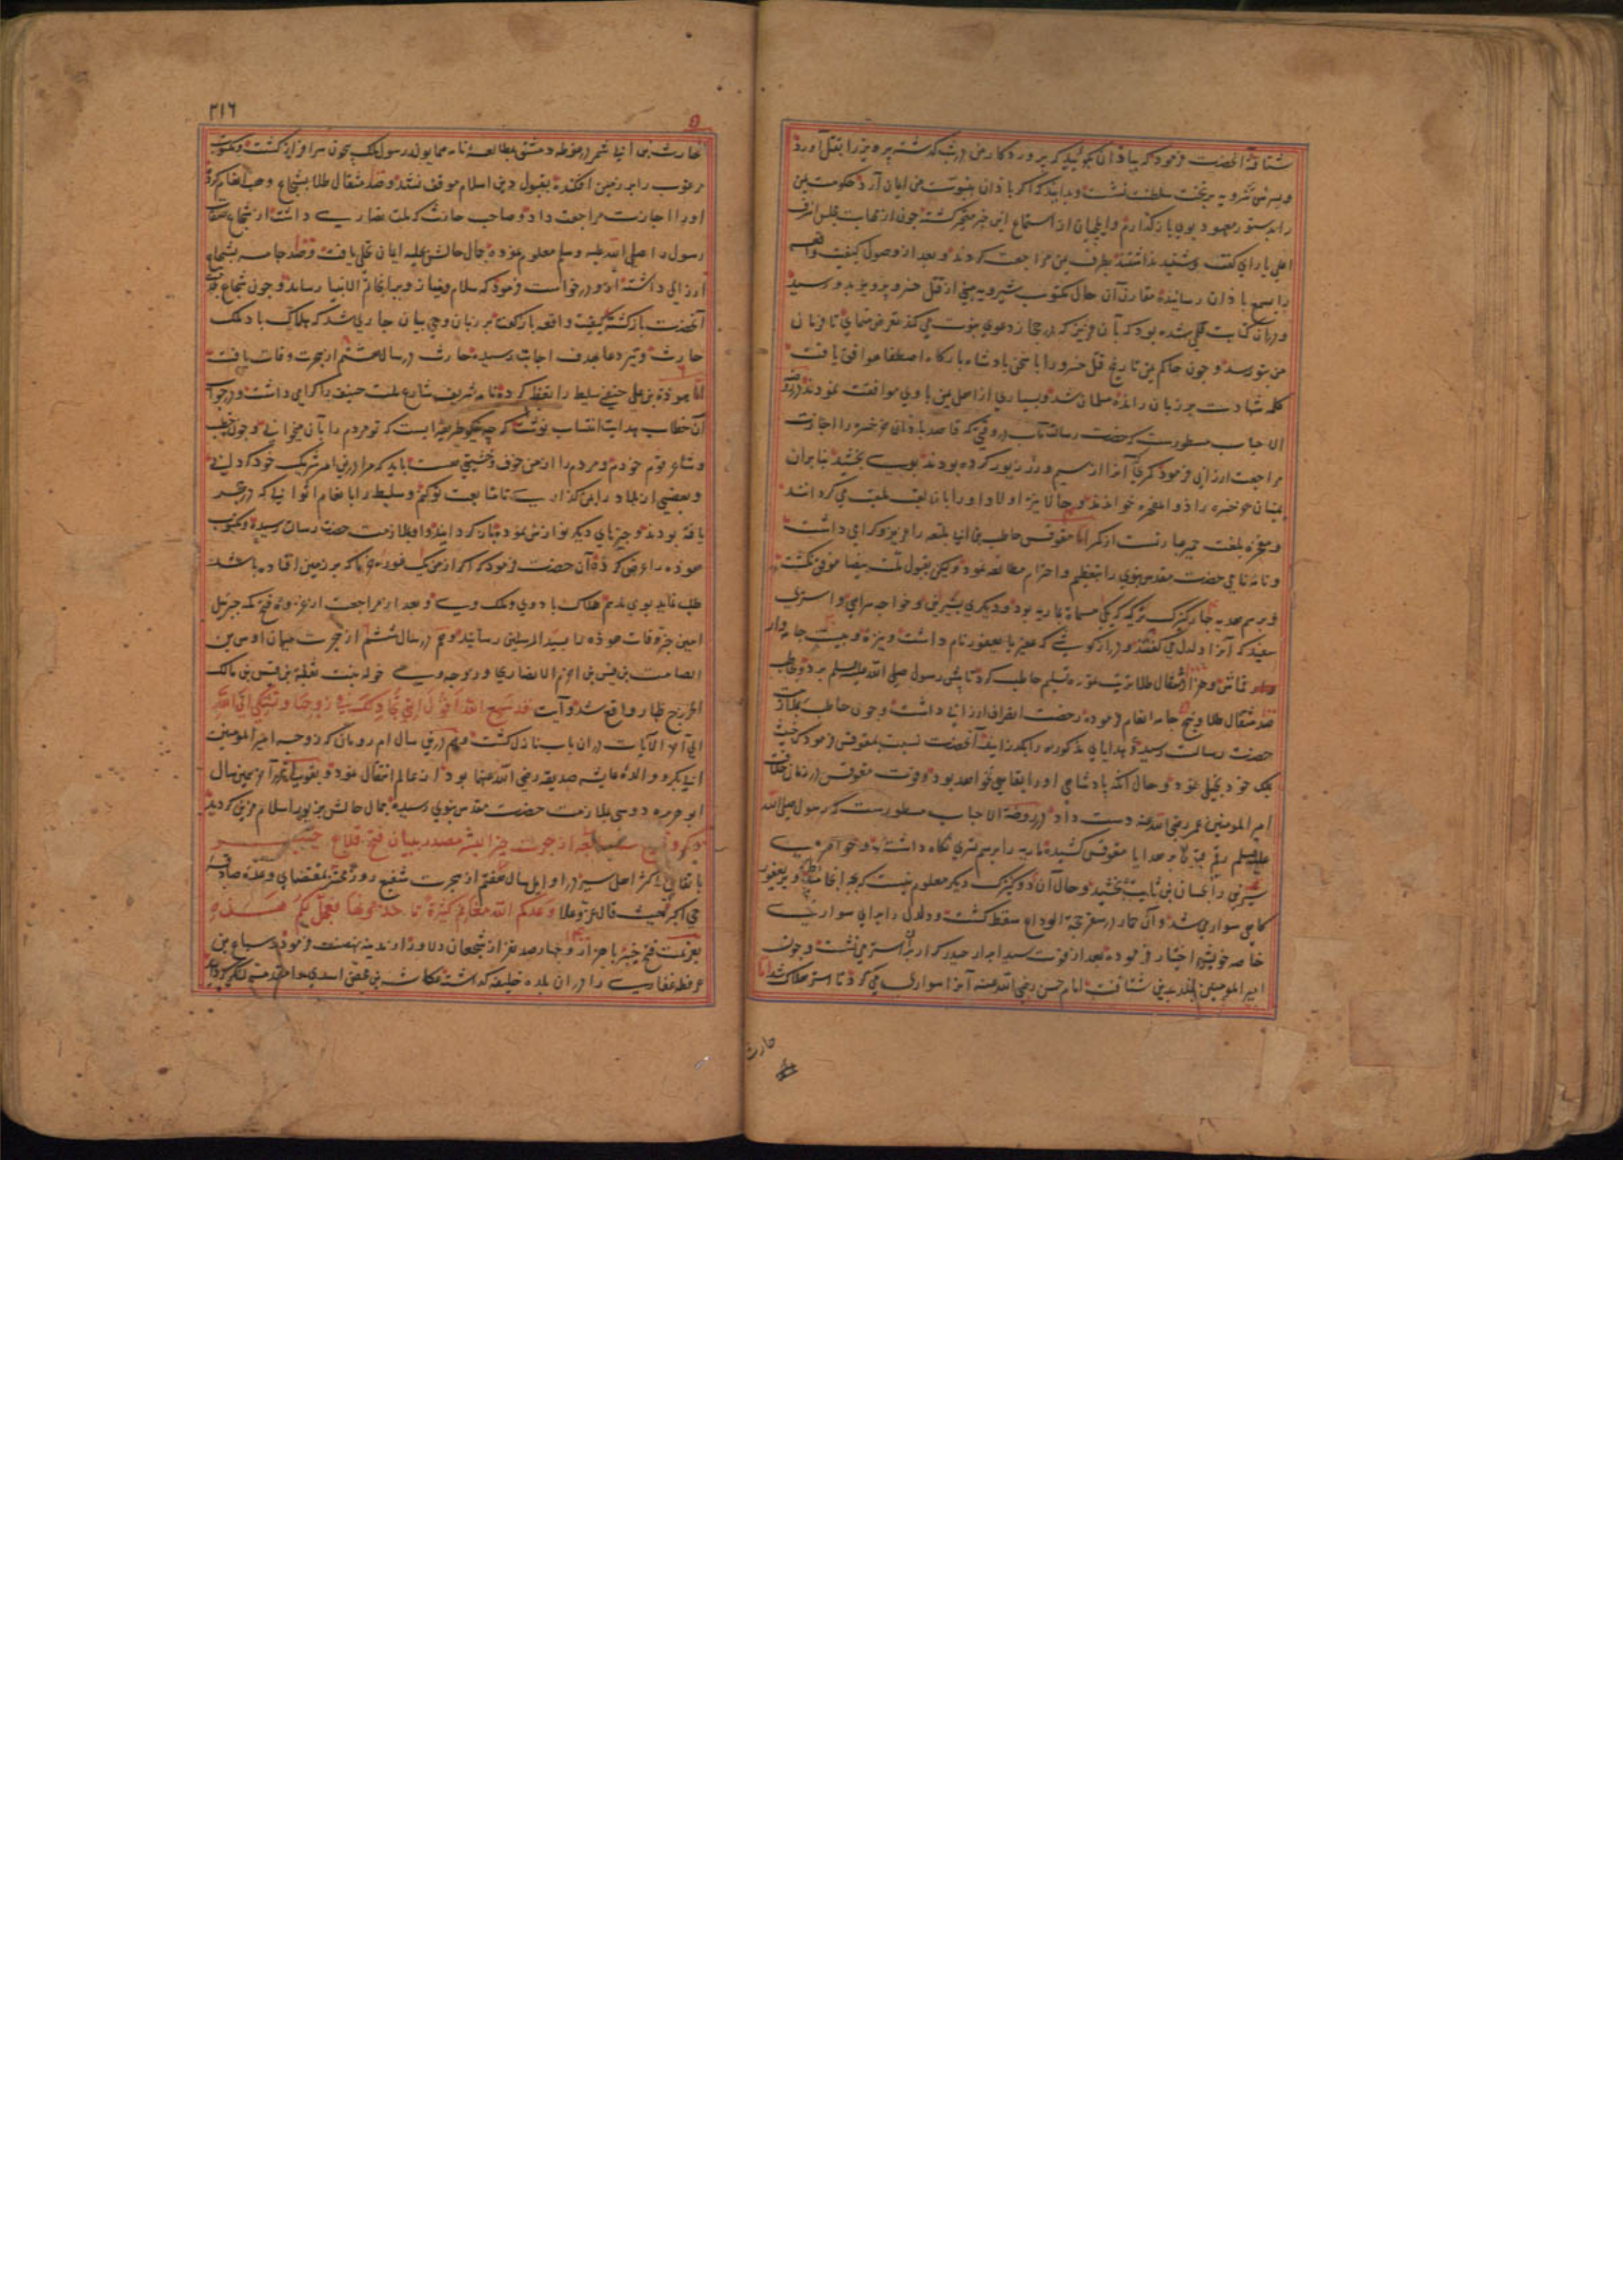 شتافته آنحضت فرمود که بباذان بگوئید که پروردکار من درشب کذشته پرویز را بقتل آورد
و پسرش شرویه بر تخت سلطنت نشست و بدانید که اکر باذان بنبوت من ایمان آرد حکومت یمن
را بدستور معهود بوی باز کذارم و ایلچیان از استماع این خبر متحیر کشته چون از مهابت مجلس اشرف
اعلی یارای کفت و شنید نداشتند بطرف یمن مراجعت کردند و بعد از وصول کیفیت واقعه
را بسمع باذان رسانیده مقارن آن حال مکتوب شیرویه مبنی از قتل خسرو پرویز بدو رسید
و در آن کتابت قلمی شده بود که بآن عزیز که در حجاز دعوی نبوت می کند تعرض منمای تا فرمان
من بتو رسد و چون حاکم یمن تاریخ قتل خسرو را با سخن پادشاه بارکاه اصطفا موافق یافت
کلمه شهادت بر زبان رانده مسلمان شد و بسیاری از اهل یمن با وی موافقت نمودند و در روضه
الاحباب مسطورست که حضرت رسالت مآب در وقتی که قاصد باذان خرخسره را اجازت
مراجعت ارزانی فرمود کمری که آنرا از سیم و زر زیور کرده بودند بوی بخشید بنابران
یمنیان خرخسره را ذوالمفخره خواندند و حالا نیز اولاد او را بآن لقب ملقب می کردانند
و مفخره بلغت حمیر عبارتست از کمر اما مقوقس حاطب بن ابی بلتعه را عزیز و کرامی داشت
و نامه نامی حضرت مقدس نبوی را بتعظیم و احترام مطالعه نمود و لیکن بقبول ملت بیضا موفق نکشت
و برسم هدیه چهار کنیزک ترکیه که یکی مسماة بماریه بود و دیکری بشیرین و خواجه سرایی و استری
سفید که آنرا دلدل می کفتند و دراز کوشی که عفیر یا یعفور نام داشت و نیزه و بیست جامه وار
قماش و هزار مثقال طلا ترتیب نموده تسلیم حاطب کرد تا پیش رسول صلی الله علیه وسلم برد و بحاطب
صد مثقال طلا و پنج جامه انعام فرموده رخصت انصراف ارزانی داشت و چون حاطب بملازمت
حضرت رسالت رسید و هدایای مذکوره را بکذرانید آنحضرت نسبت بمقوقس فرمود که خبیث
بملک خود بخیلی نمود و حال آنکه پادشاهی او را بقایی نخواهد بود و فوت مقوقس در زمان خلافت
امیر المومنین عمر رضی الله عنه دست داد و در روضة الاحباب مسطورست که رسول صلی الله
علیه وسلم رقم قبول بر هدایا مقوقس کشیده ماریه را برسم سری نکاه داشت و خواهر وی
شیرین را بحسان بن ثابت بخشید و حال آن دو کنیزک دیکر معلوم نیست که بچه انجامید و بر یعفور
کاهی سوار می شد و آن حمار در سفر حجة الوداع سقط کشت و دلدل را برای سواری
خاصه خویش اختیار فرموده بعد از فوت سید ابرار حیدر کرار بران استر می نشست و چون
امیر المومنین بخلد برین شتافت امام حسن رضی الله عنه آنرا سواری می کرد تا استر هلاک شد اما
حارث
۲۱۶
حارث بن ابی شمر در غوطه دمشق بمطالعه نامه همایون رسول ملک بیچون سرافراز کشت و مکتوب
مرغوب را بر زمین افکنده بقبول دین اسلام موفق نشد و صد مثقال طلا بشجاع وهب انعام کرد
او را اجازت مراجعت داد و صاحب حارث که ملت نصاری داشت از شجاع صفات
رسول را صلی الله علیه وسلم معلوم نموده جمال حالش بحلیه ایمان تحلی یافت و چند جامه بشجاع
ارزانی داشته ازو درخواست فرمود که سلام و نیاز ویرا بخاتم الانبیا رساند و چون شجاع بخدمت
آنحضرت بازکشته کیفیت واقعه بازکفت بر زبان وحی بیان جاری شد که هلاک باد ملک
حارث و تیر دعا بهدف اجابت رسیده حارث در سال هشتم از هجرت وفات یافت
اما هوذة بن علی حنفی سلیط را تعظیم کرده نامه شریف شارع ملت حنیف را کرامی داشت و در جواب
آن خطاب هدایت انتساب نوشت که چه نیکو طریقه ایست که تو مردم را بآن میخوانی و چون خطیب
و شاعر قوم خودم و مردم را از من خوف و خشیتی هست باید که مرا درین امر شریک خود کردانی
و بعضی از بلاد را بمن کذاری تا متابعت تو کنم و سلیط را بانعام اثوابی که در هجر
یافته بودند و چیزهای دیکر نوازش نموده باز کردانید و او بملازمت حضرت رسالت رسیده و مکتوب
هوذه را عرض کرد آن حضرت فرمود که اکر از من یک غوره خرما که بر زمین افتاده باشد
طلب نماید بوی ندهم هلاک باد وی و ملک وی و بعد از مراجعت از غزوه فتح مکه جبرئیل
امین خبر وفات هوذه را بسید المرسلین رسانید و هم در سال ششم از هجرت میان اوس بن
الصامت بن قیس بن اصرم الانصاری و زوجه وی خوله بنت ثعلبة بن قیس بن مالک
الخزرج ظهار واقع شد و آیت قد سمع الله قول التی تجادلک فی زوجها و تشتکی الی الله
الی آخر الآیات در ان باب نازل کشت و هم درین سال ام رومان که زوجه امیر المومنین
ابی بکر و والده عایشه صدیقه رضی الله عنها بود از عالم انتقال نمود و بقولی در آخر همین سال
ابو هریره دوسی بملازمت حضرت مقدس نبوی رسیده جمال حالش بزیور اسلام مزین کردید
ذکر وقایع سنه سبع از هجرت خیر البشر مصدر ببیان فتح قلاع خیبر
باتفاق اکثر اهل سیر در اوایل سال هفتم از هجرت شفیع روز محشر بمقتضای وعده صادقه
حی اکبر حیث قال عز و علا وعدکم الله مغانم کثیرة تاخذونها فعجل لکم هذه
بعزیمت فتح خیبر با هزار و چهار صد نفر از شجعان دلاور از مدینه نهضت فرمود و سباع بن
عرفطه غفاری را در ان بلده خلیفه کذاشت و عکاشه بن محصن اسدی را مقدمه لشکر